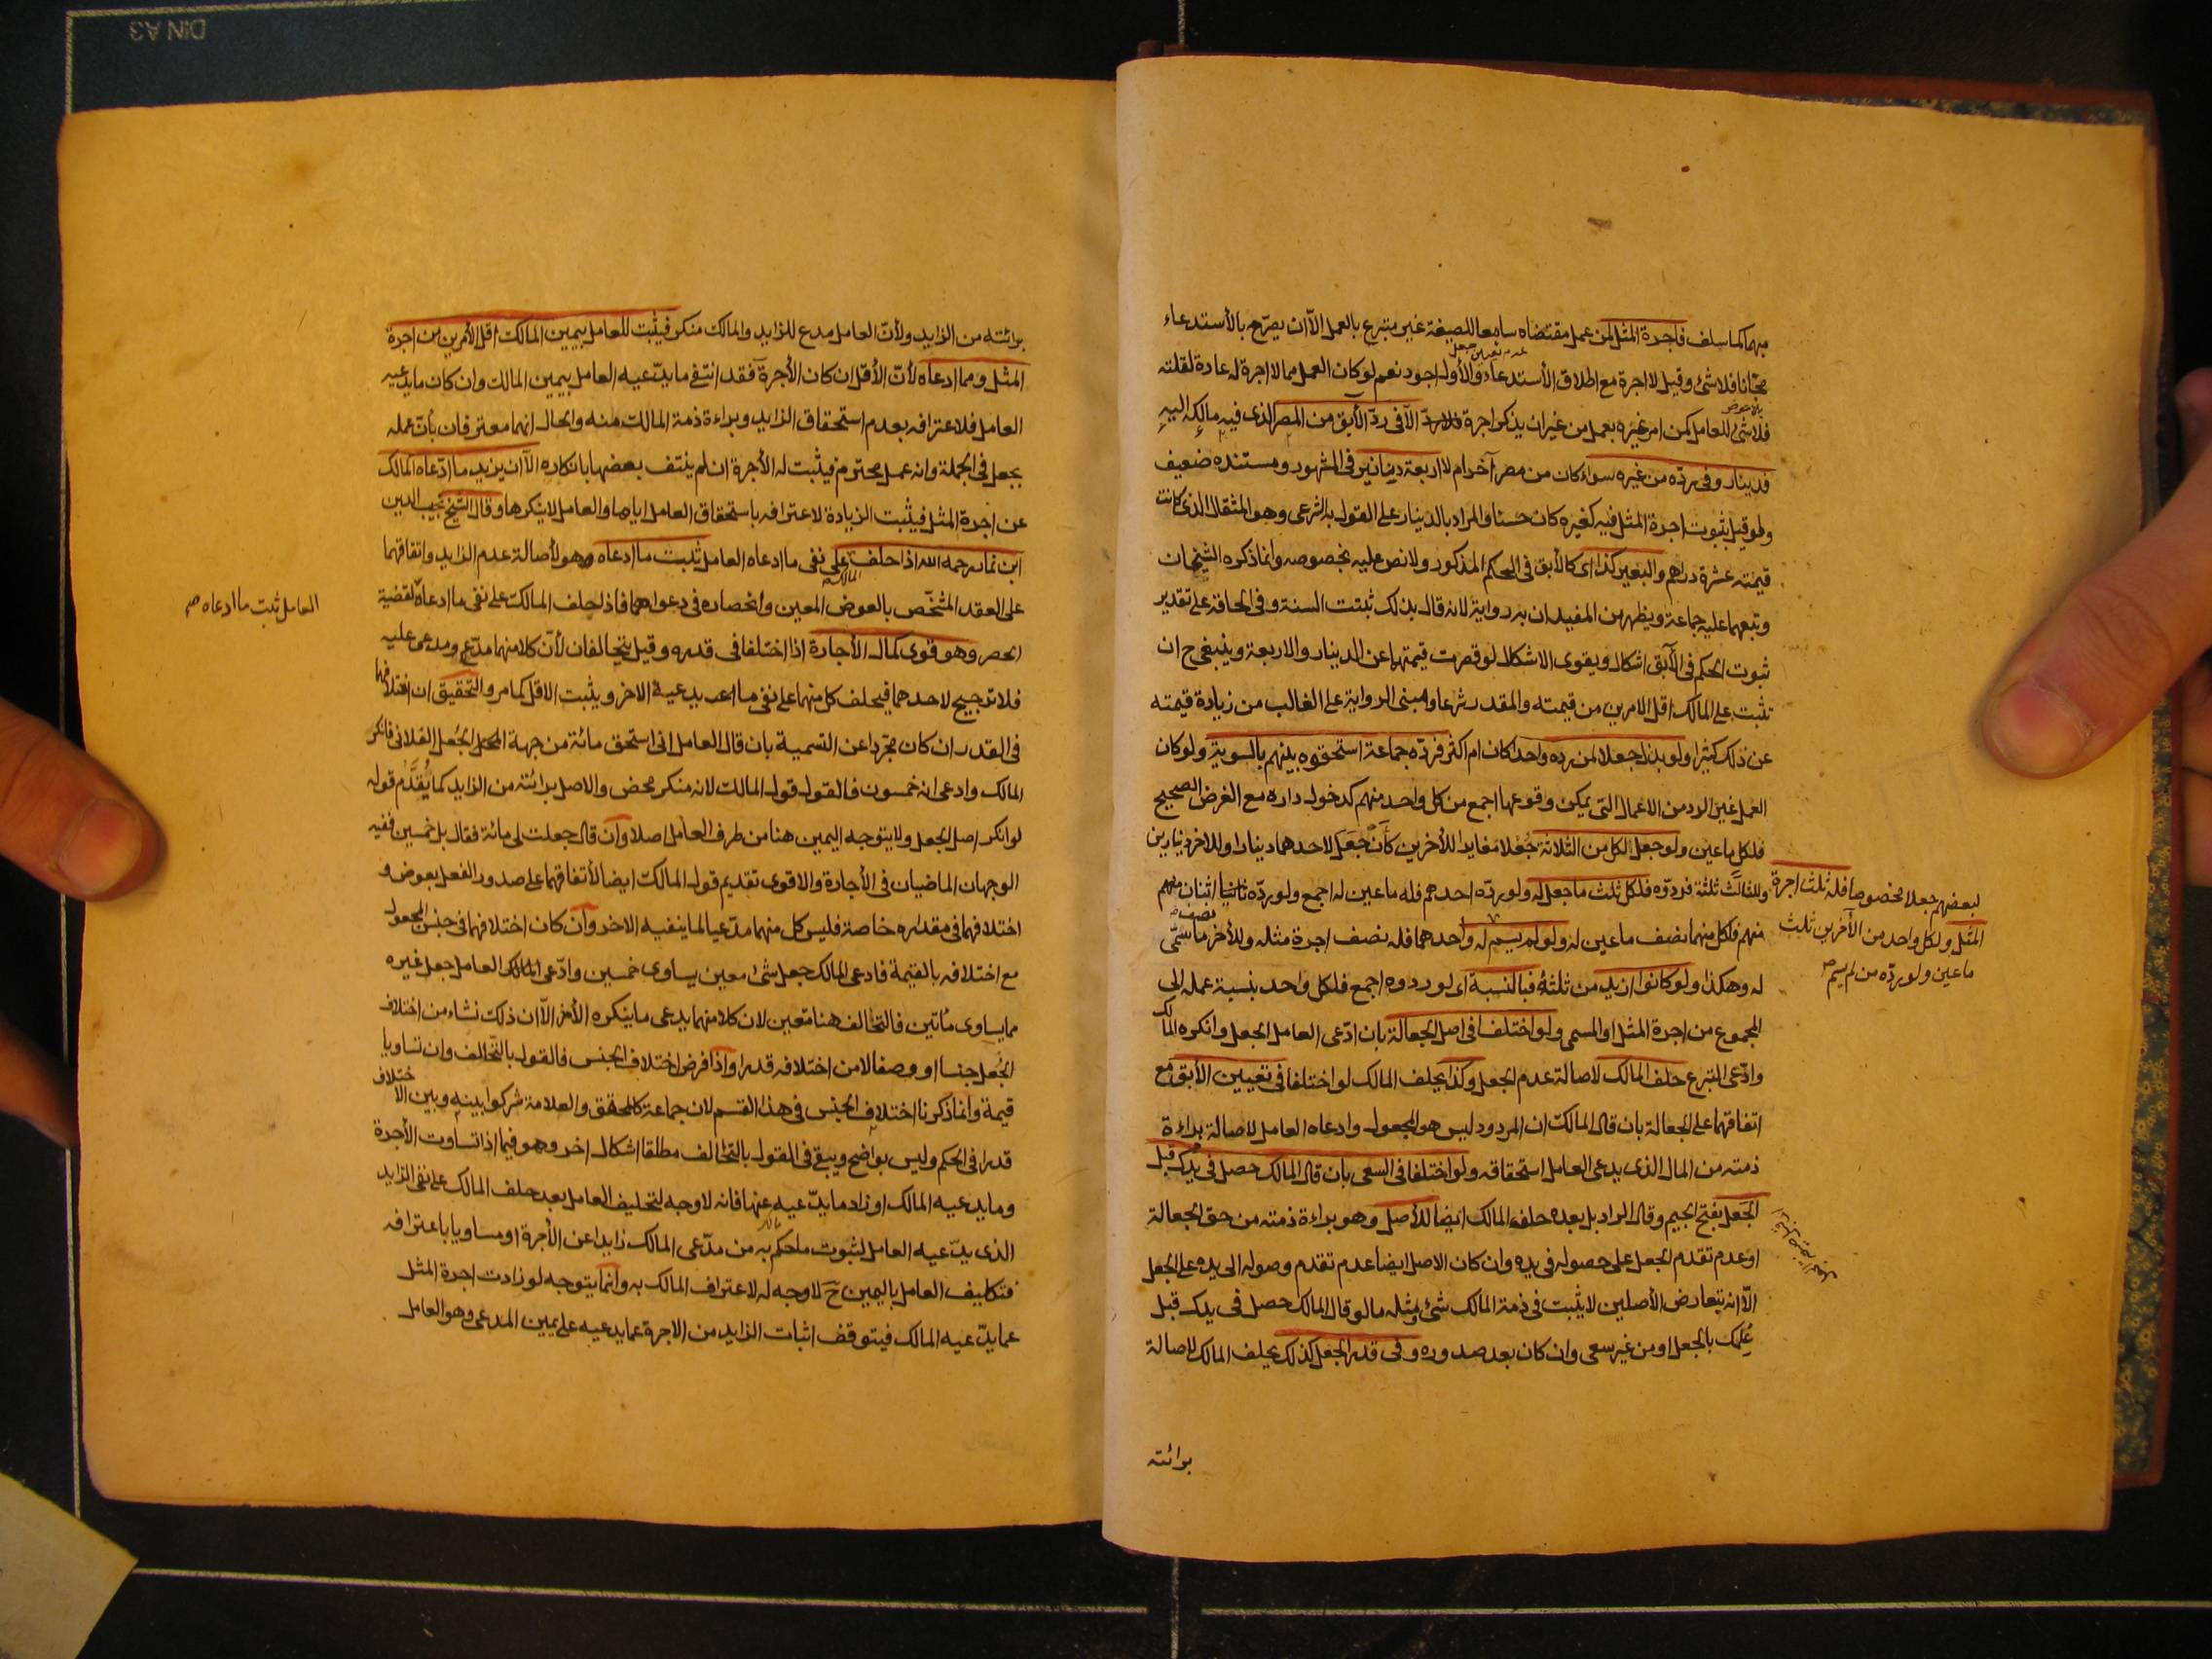 مبهما كما سلف فاجرة المثل لمن عمل مقتضاه سامعا للصيغة غير متبرع بالعمل الا ان يصرح بالأستدعاء
عدم تعيين جعل
مجانا فلا شئ وقيل لا اجرة مع اطلاق الأستدعاء والأول اجود نعم لو كان العمل مما لا اجرة له عادة لقلته
بلا عوض
فلا شئ للعامل كمن امر غيره بعمل من غير ان يذكر اجرة الا فى ردّ الآبق من المصر الذى فيه مالكه اليه
فدينار وفى ردّه من غيره سواء كان من مصر آخر ام لا اربعة دنانير فى المشهور ومستنده ضعيف
ولو قيل بثبوت اجرة المثل فيه كغيره كان حسنا والمراد بالدينار على القول به الشرعى وهو المثقال الذى كانت
قيمته عشرة دراهم والبعير كذا اى كالآبق فى الحكم المذكور ولا نص عليه بخصوصه وانما ذكره الشيخان
وتبعهما عليه جماعة ويظهر من المفيد ان به رواية لانه قال بذلك ثبتت السنة وفى الحاقه على تقدير
ثبوت الحكم فى الآبق اشكال ويقوى الاشكال لو قصرت قيمتهما عن الدينار والاربعة وينبغى ح ان
تثبت على المالك اقل الامرين من قيمته والمقدر شرعا ومبنى الرواية على الغالب من زيادة قيمته
عن ذلك كثيرا ولو بذل جعلا لمن رده واحدا كان ام اكثر فردّه جماعة استحقوه بينهم بالسوية ولو كان
العمل غير الرد من الاعمال التى يمكن وقوعها اجمع من كل واحد منهم كدخول داره مع الغرض الصحيح
فلكل ما عين ولو جعل لكل من الثلاثة جعلا مغايرا للأخرين كأن جعل لاحدهما دينارا وللاخر دينارين
وللثالث ثلثة فردّوه فلكل ثلث ما جعل له ولو ردّه احدهم فله ما عين له اجمع ولو ردّه اثنان منهم
منهم فلكل منهما نصف ما عين له ولو لم يسم له واحدهما فله نصف اجرة مثله وللأخر نصف ما سمّى
له وهكذا ولو كانوا ازيد من ثلثة فبالنسبة اى لو ردوه اجمع فلكل واحد بنسبة عمله الى
المجموع من اجرة المثل او المسمى ولو اختلفا فى اصل الجعالة بان ادّعى العامل الجعل وانكره المالك
وادّعى التبرع حلف المالك لاصالة عدم الجعل وكذا يحلف المالك لو اختلفا فى تعيين الأبق مع
اتفاقهما على الجعالة بان قال المالك ان المردود ليس هو المجعول وادعاه العامل لاصالة براءة
ذمته من المال الذى يدعى العامل استحقاقه ولو اختلفا فى السعى بان قال المالك حصل فى يدك قبل
الجَعل بفتح الجيم وقال الراد بل بعده حلف المالك ايضا للأصل وهو براءة ذمته من حق الجعالة
او عدم تقدم الجعل على حصوله فى يده وان كان الاصل ايضا عدم تقدم وصوله الى يده على الجعل
الّا انه بتعارض الأصلين لا يثبت فى ذمة المالك شئ ومثله ما لو قال المالك حصل فى يدك قبل
عِلمك بالجعل او من غير سعى وان كان بعد صدوره وفى قدر الجعل كذلك يحلف المالك لاصالة
برائته
لبعضهم جعلا مخصوصا فله ثلث اجرة
المثل ولكل واحد من الأخرين ثلث
ما عين ولو ردّه من لم يسم
برائته من الزايد ولأنّ العامل مدع للزايد والمالك منكر فيثبت للعامل بيمين المالك اقل الأمرين من اجرة
المثل ومما ادعاه لأنّ الأقل ان كان الأجرة فقد انتفى ما يدّعيه العامل بيمين المالك وان كان ما يدعيه
العامل فلاعترافه بعدم استحقاق الزايد وبراءة ذمة المالك منه والحال انهما معترفان بأنّ عمله
بجعل فى الجملة وانه عمل محترم فيثبت له الأجرة ان لم ينتف بعضها بانكاره الا ان يزيد ما ادّعاه المالك
عن اجرة المثل فيثبت الزيادة لاعترافه باستحقاق العامل اياها والعامل لا ينكرها وقال الشيخ نجيب الدين
ابن نما رحمه الله اذا حلف المالك على نفى ما ادعاه العامل ثبت ما ادعاه وهو لأصالة عدم الزايد واتفاقهما
على العقد المشخّص بالعوض المعين وانحصاره فى دعواهما فاذا حلف المالك على نفى ما ادعاه لقضية
العامل ثبت ما ادعاه صح
الحصر وهو قوى كمال الأجارة اذا اختلفا فى قدره وقيل يتحالفان لأنّ كلا منهما مدّع ومدعى عليه
فلا ترجيح لاحدهما فيحلف كل منهما على نفى ما يدعيه الاخر ويثبت الاقل كما مر والتحقيق ان اختلافهما
فى القدر ان كان مجرّدا عن التسمية بان قال العامل انى استحق مائة من جهة الجُعل الفلانى فانكر
المالك وادعى انه خمسون فالقول قول المالك لانه منكر محض والاصل برائته من الزايد كما يُقدَّم قوله
لو انكر اصل الجعل ولا يتوجه اليمين هنا من طرف العامل اصلا وان قال جعلت لى مائة فقال بل خمسين ففيه
الوجهان الماضيان فى الأجارة والاقوى تقديم قول المالك ايضا لأتفاقهما على صدور الفعل بعوض و
اختلافهما فى مقداره خاصة فليس كل منهما مدّعيا لما ينفيه الاخر وان كان اختلافهما فى جنس المجعول
مع اختلافه بالقيمة فادعى المالك جعل شئ معين يساوى خمسين وادّعى العامل جعل غيره
مما يساوى مأتين فالتحالف هنا متعين لان كلا منهما يدعى ما ينكره الأخر الّا ان ذلك نشاء من اختلاف
الجُعل جنسا او وصفا لا من اختلافه قدرا واذا فرض اختلاف الجنس فالقول بالتحالف وان تساويا
قيمة وانما ذكرنا اختلاف الجنس فى هذا القسم لان جماعة كالمحقق والعلامة شركوا بينه وبين الاختلاف
قدرا فى الحكم وليس بواضح ويبقى فى القول بالتحالف مطلقا اشكال اخر وهو فيما اذا تساوت الأجرة
وما يدعيه المالك او زاد ما يدّعيه عنها فانه لا وجه لتحليف العامل بعد حلف المالك على نفى الزايد
الذى يدّعيه العامل لثبوت ما حكم به من مدّعى المالك زايدا عن الأجرة او مساويا باعترافه
فتكليف العامل باليمين ح لا وجه له لاعتراف المالك به وانما يتوجه لو زادت اجرة المثل
عما يدّعيه المالك فيتوقف اثبات الزايد من الاجرة عما يدعيه على يمين المدعى وهو العامل
DIN A3